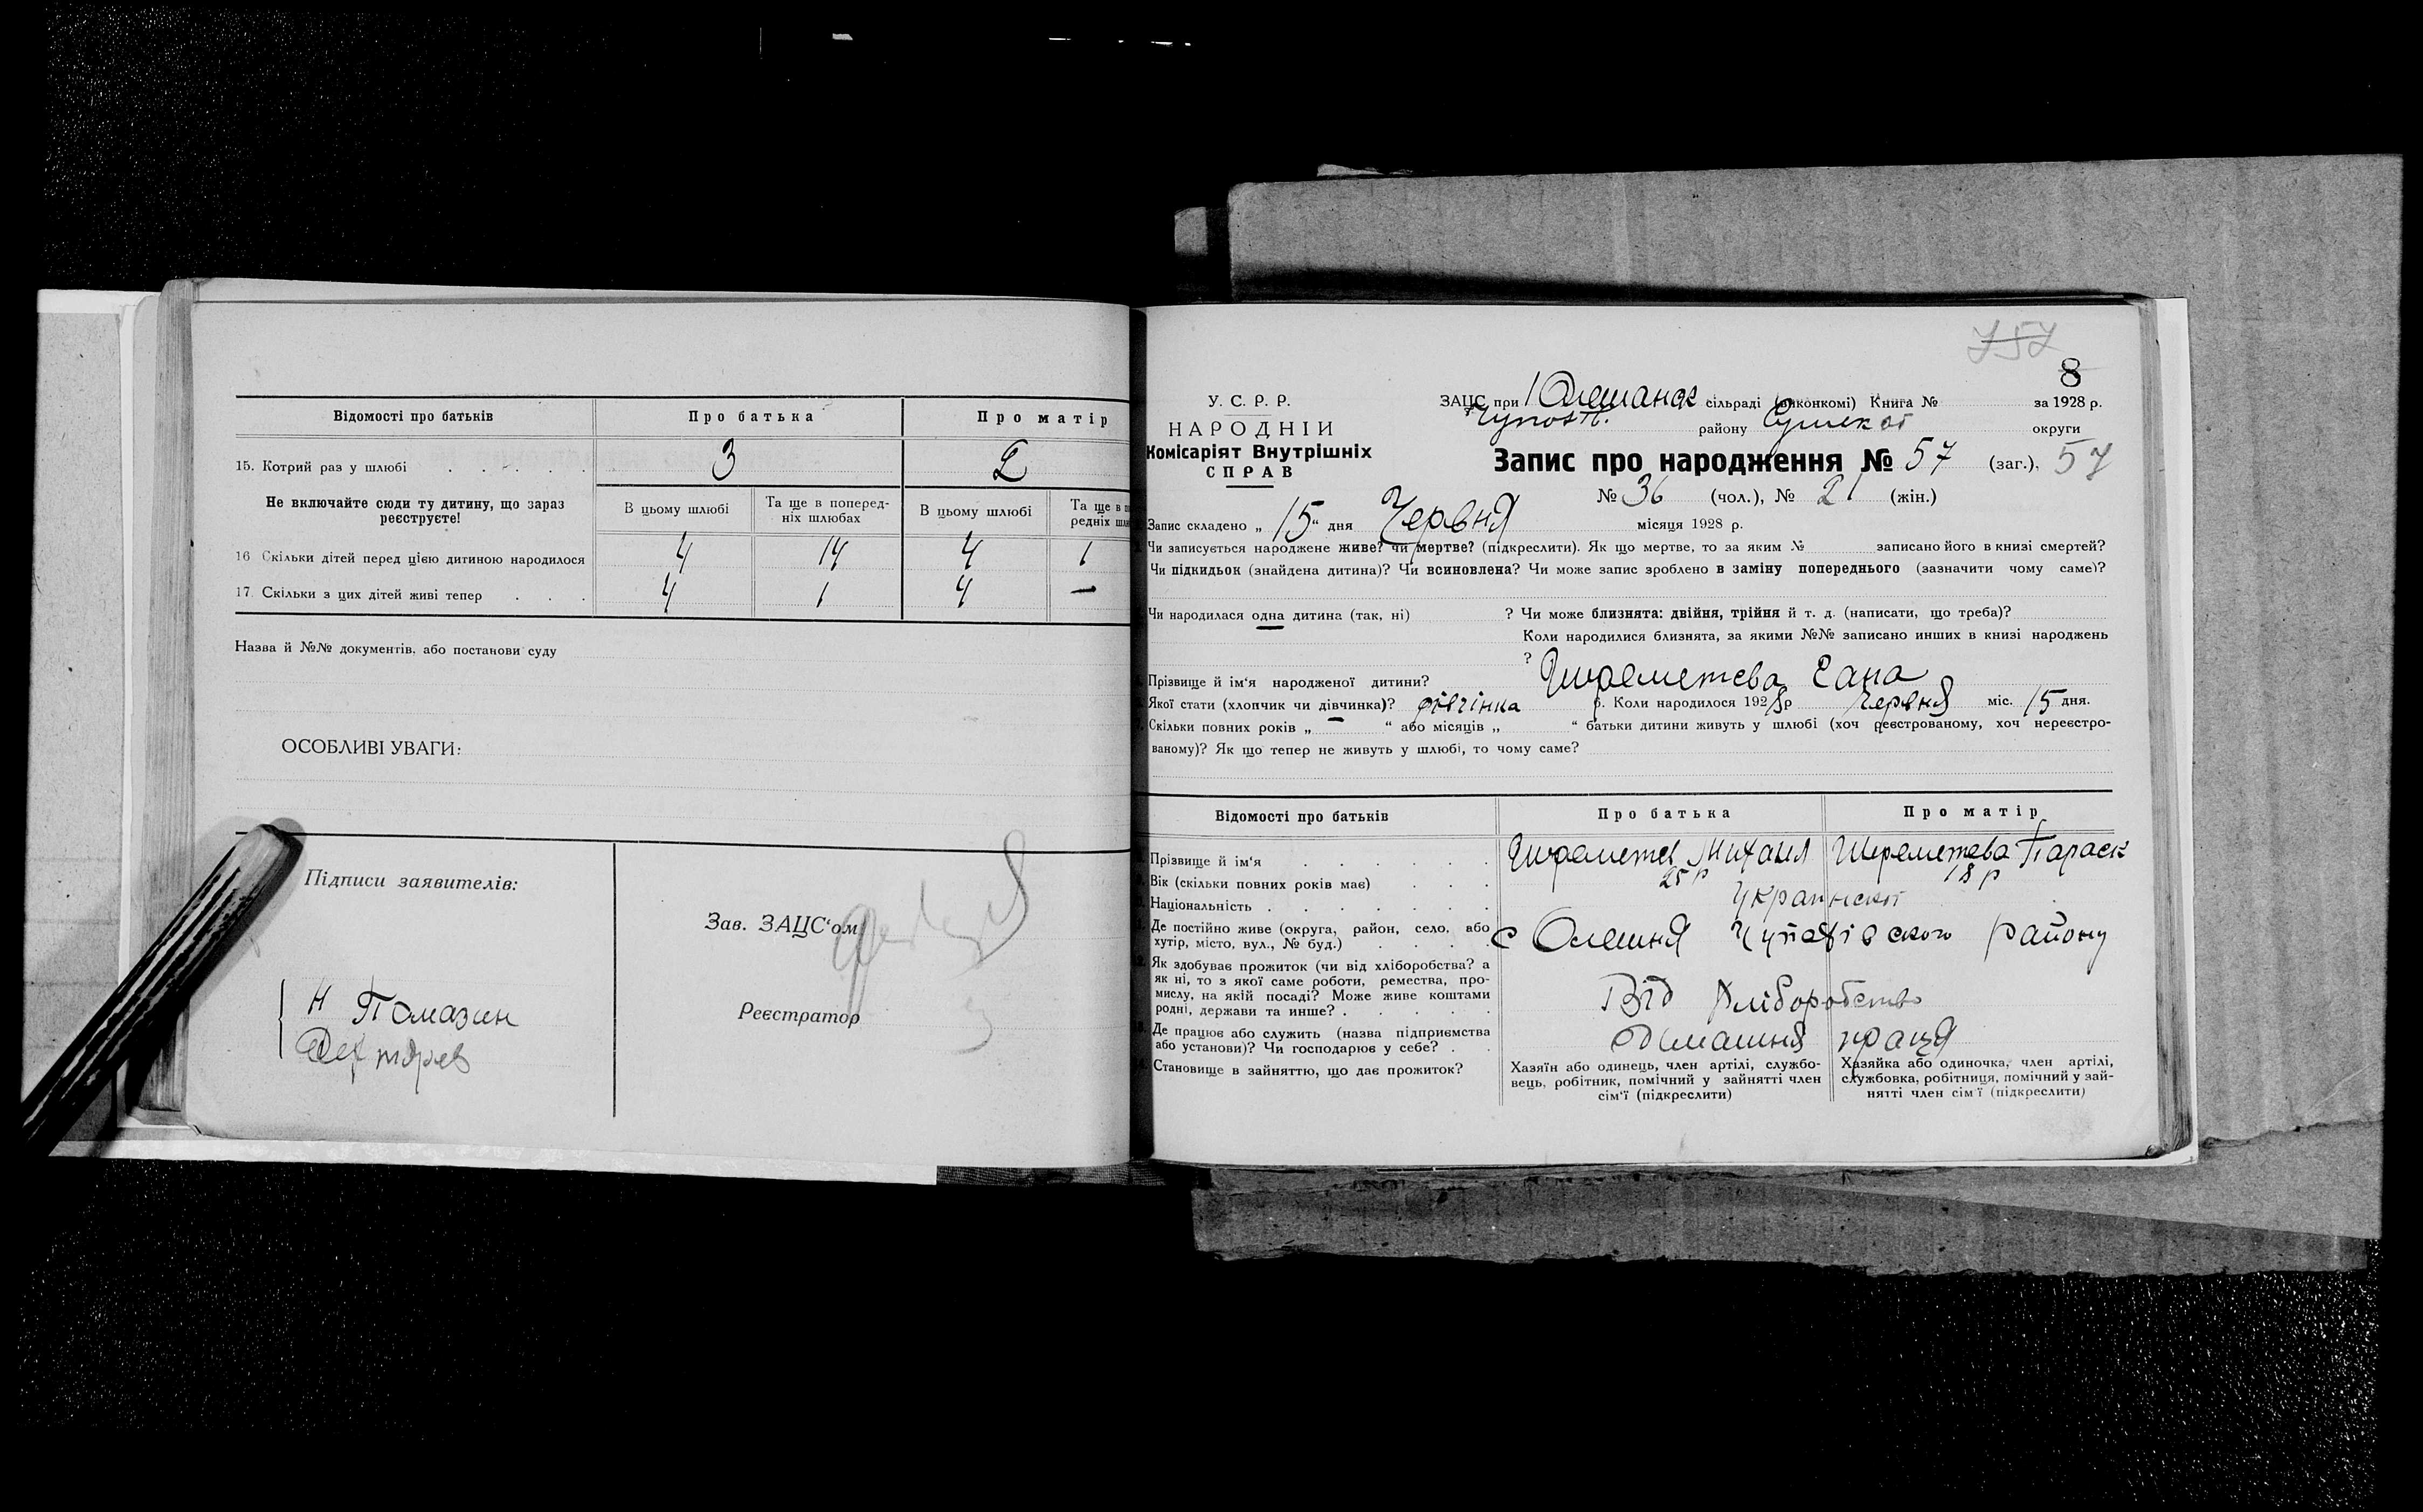 Відомості про батьків Про батька Про матір
15. Котрий раз у шлюбі 3 2
Не включайте сюди ту дитину, що зараз реєструєте!
В цьому шлюбі Та ще в поперед-ніх шлюбах В цьому шлюбі Та ще в
редніх
16 Скільки дітей перед цією дитиною народилося 4 14 4 1
17. Скільки з цих дітей живі тепер 4 1 4 —
Назва й №№ документів, або постанови суду
ОСОБЛИВІ УВАГИ:
Підписи заявителів:
Зав. ЗАЦС'ом
Реєстратор
Н Помазин
757
8
У. С. Р. Р.
НАРОДНІЙ
Комісаріят Внутрішніх
СПРАВ
ЗАЦС при Олешанск сільраді (виконкомі) Книга № за 1928 р.
району Сумскої округи
Запис про народження № 57 (заг.), 57
№ 36 (чол.), № 21 (жін.)
Запис складено „ 15 “ дня Червня місяця 1928 р.
Чи записується народжене живе? чи мертве? (підкреслити). Як що мертве, то за яким № записано його в книзі смертей?
Чи підкидьок (знайдена дитина)? Чи всиновлена? Чи може запис зроблено в заміну попереднього (зазначити чому саме)?
Чи народилася одна дитина (так, ні) ? Чи може близнята: двійня, трійня й т. д. (написати, що треба)?
Коли народилися близнята, за якими №№ записано инших в книзі народжень
?
Прізвище й ім'я народженої дитини? Шереметева Єана
Якої стати (хлопчик чи дівчинка)? дівчінка р. Коли народилося 1928 р Червня міс. 15 дня.
Скільки повних років „ “ або місяців „ “ батьки дитини живуть у шлюбі (хоч реєстрованому, хоч нереєстро-
ваному)? Як що тепер не живуть у шлюбі, то чому саме?
Відомості про батьків Про батька Про матір
Прізвище й ім'я Шереметев Михаил Шереметева Параск
Вік (скільки повних років має) 25 р 18 р
Національність Украинскої
Де постійно живе (округа, район, село, або
хутір, місто, вул., № буд.) с Олешня Чупахівского району
Як здобуває прожиток (чи від хліборобства? а
як ні, то з якої саме роботи, ремества, про-
мислу, на якій посаді? Може живе коштами
родні, держави та инше? Від хліборобство
Де працює або служить (назва підприємства
або установи)? Чи господарює у себе? Домашня праця
Становище в зайняттю, що дає прожиток?
Хазяїн або одинець, член артілі, службо-
вець, робітник, помічний у зайнятті член
сім'ї (підкреслити)
Хазяйка або одиночка, член артілі,
службовка, робітниця, помічний у зай-
нятті член сім'ї (підкреслити)